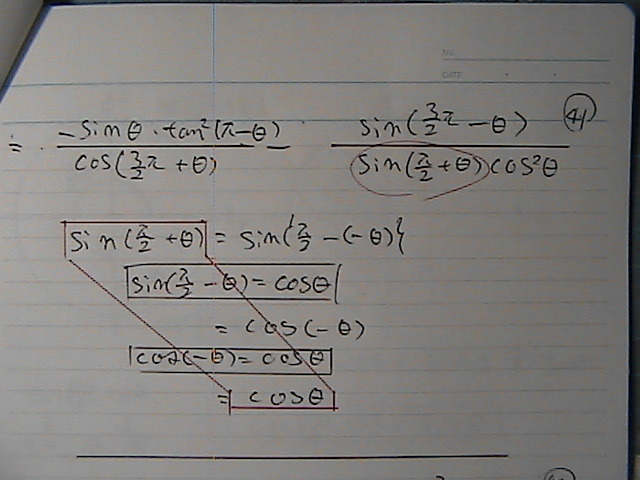 NO.
DATE
41
= -sinθ・tan²(π-θ) / cos(3/2π+θ) - sin(3/2π-θ) / sin(π/2+θ)cos²θ
sin(π/2+θ) = sin{π/2-(-θ)}
sin(π/2-θ)=cosθ
= cos(-θ)
cos(-θ)=cosθ
= cosθ